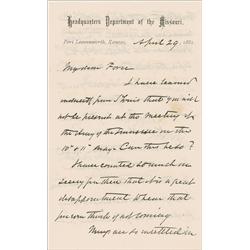 Headquarters Department of the Missouri,
Fort Leavenworth, Kansas, April 29, 188
My dear Force
I have learned
indirectly from St Louis that you will
not be present at the meeting of
the Army of the Tennessee on the
10th & 11th May - Can this be so?
I have counted so much on
seeing you there that it is a great
disappointment to hear that
you even think of not coming.
Things are so unsettled in